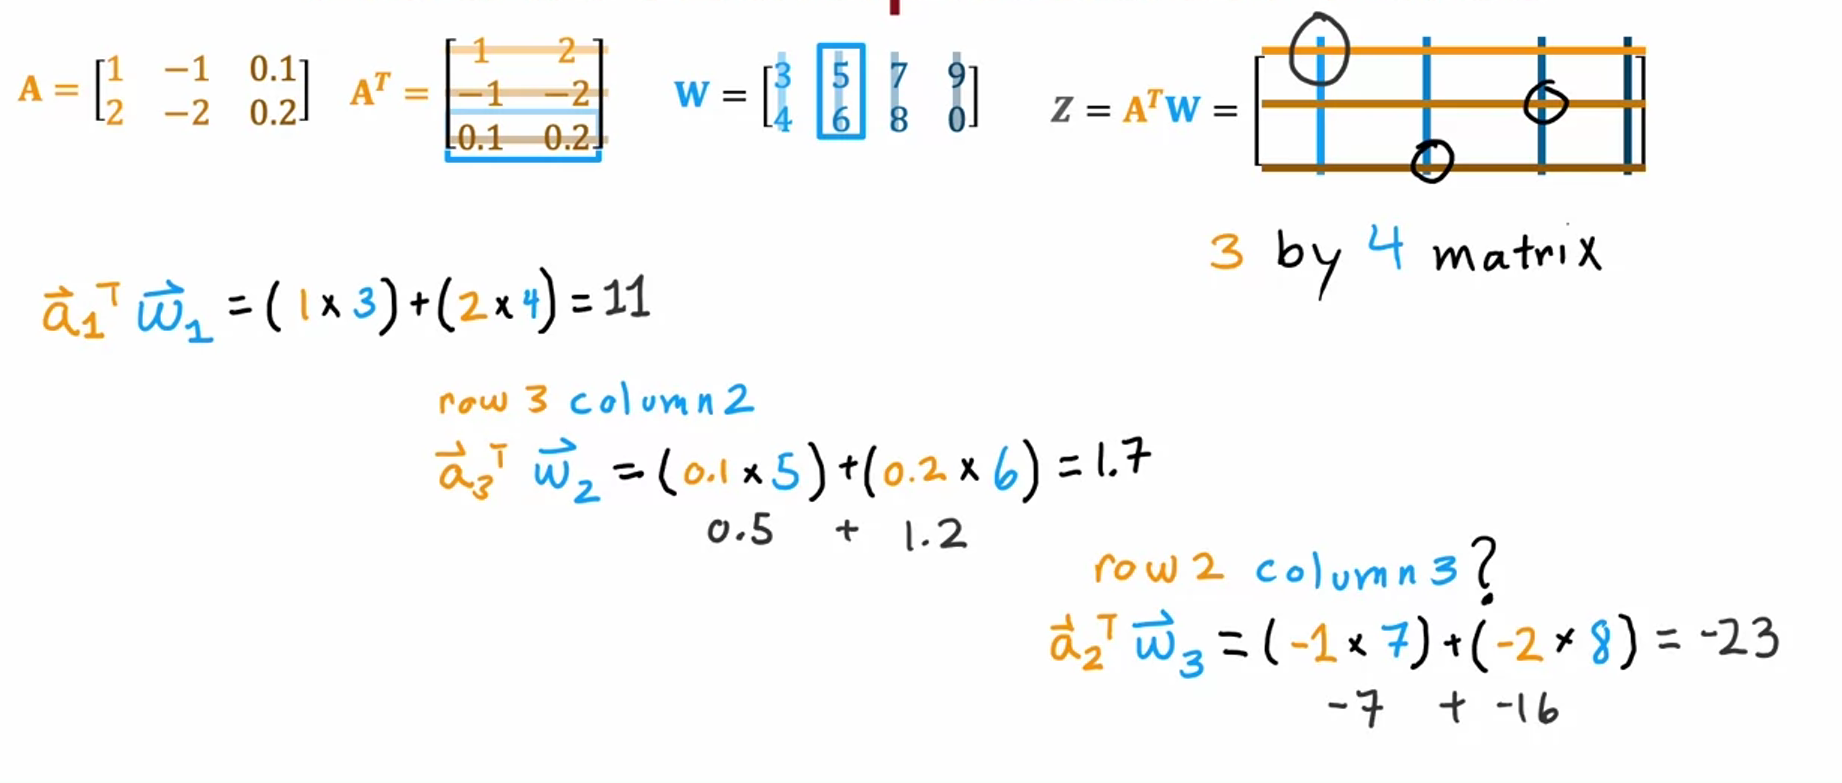 A = [1 −1 0.1
2 −2 0.2]
Aᵀ = [1 2
−1 −2
0.1 0.2]
W = [3 5 7 9
4 6 8 0]
Z = AᵀW = [ ]
3 by 4 matrix
a⃗₁ᵀ w⃗₁ = (1 × 3) + (2 × 4) = 11
row 3 column 2
a⃗₃ᵀ w⃗₂ = (0.1 × 5) + (0.2 × 6) = 1.7
0.5 + 1.2
row 2 column 3?
a⃗₂ᵀ w⃗₃ = (-1 × 7) + (-2 × 8) = -23
-7 + -16